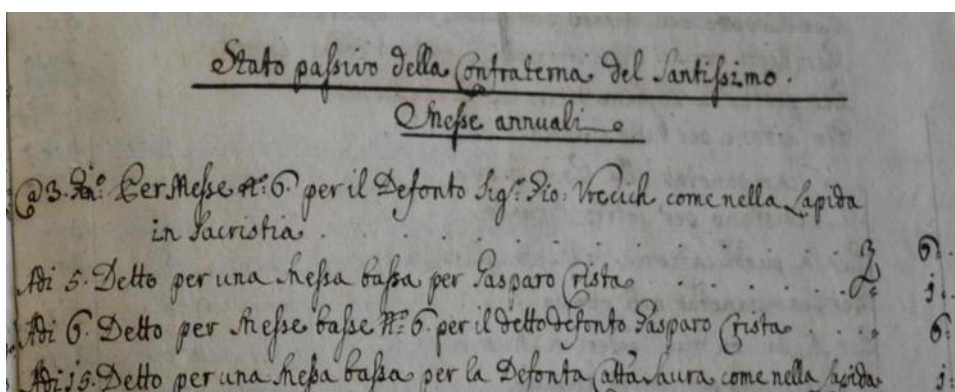 Stato passivo della Confraterna del Santissimo.
Messe annuali
@ 3. Per Messe N.º 6. per il Defonto Sig.r Gio: Vrecich come nella Lapida
in Sacristia . . . . . . . . . . . . 6:
Adi 5. Detto per una Messa bassa per Gasparo Crista . . . . . . 1:
Adi 6. Detto per Messe basse N.º 6. per il detto defonto Gasparo Crista . . 6:
Adi 15. Detto per una Messa bassa per la Defonta Laura come nella Lapida 1: